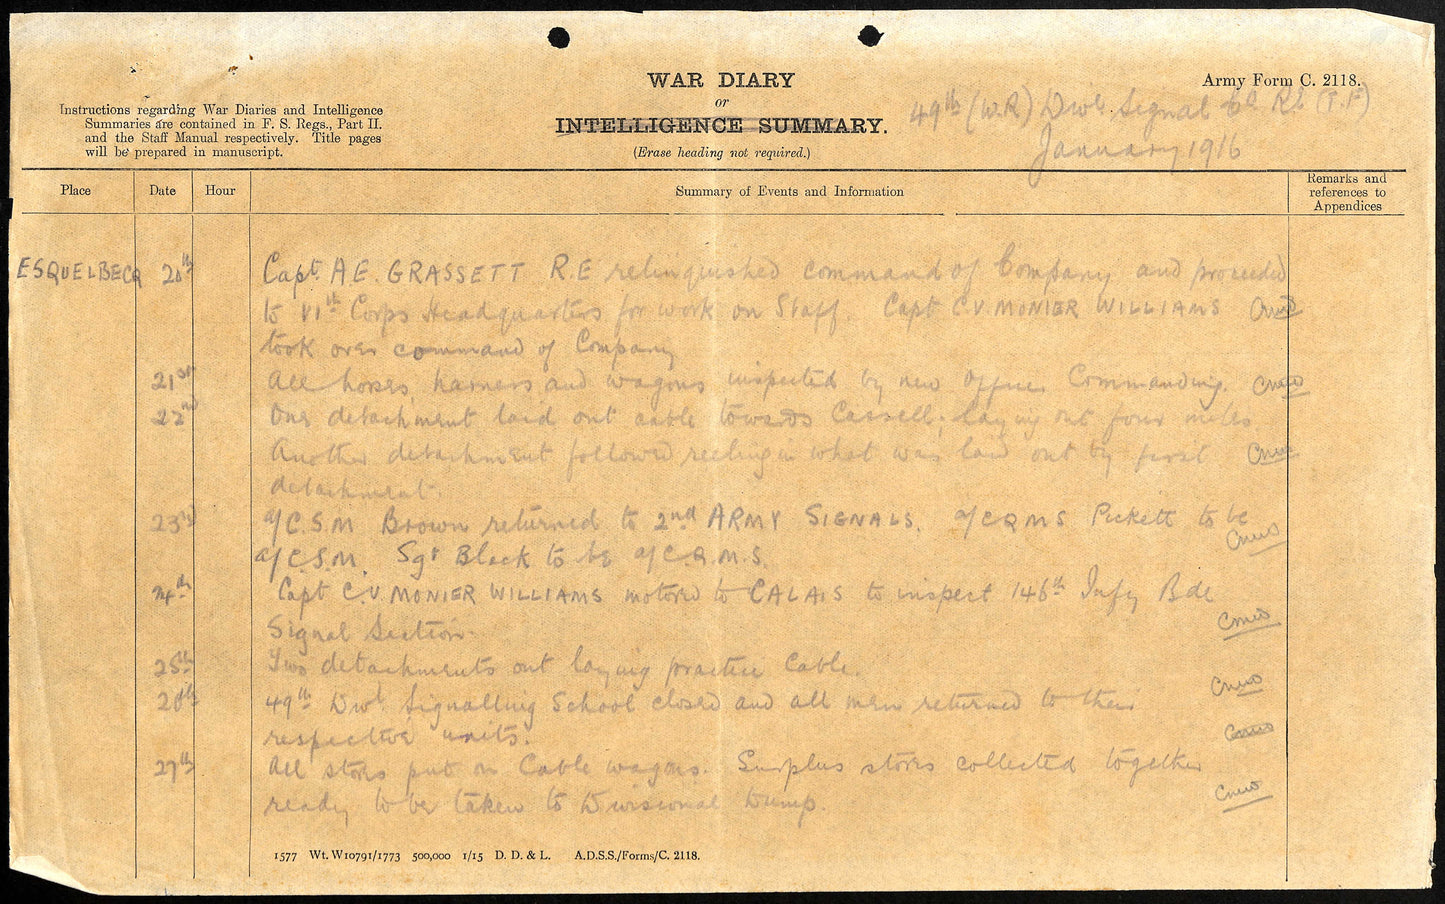 WAR DIARY
or
INTELLIGENCE SUMMARY.
(Erase heading not required.)
Army Form C. 2118.
49th (W.R) Divl. Signal Co RE (T.F)
January 1916
Instructions regarding War Diaries and Intelligence
Summaries are contained in F. S. Regs., Part II.
and the Staff Manual respectively. Title pages
will be prepared in manuscript.
Place Date Hour Summary of Events and Information Remarks and
references to
Appendices
ESQUELBECQ 20th Capt. A E. GRASSETT R.E relinquished command of Company and proceeded
to VIth Corps Headquarters for work on Staff. Capt C.V. MONIER WILLIAMS
took over command of Company
21st All horses, harness and wagons inspected by new Officer Commanding.
22nd One detachment laid out cable towards Cassell; laying out four miles
Another detachment followed reeling in what was laid out by first
detachment.
23rd a/C.S.M Brown returned to 2nd ARMY SIGNALS. a/CQMS Pickett to be
a/C.S.M. Sgt Black to be a/C.Q.M.S.
24th Capt C.V. MONIER WILLIAMS motored to CALAIS to inspect 146th Infy Bde
Signal Section.
25th Two detachments out laying practice Cable.
49th Divl. Signalling School closed and all men returned to their
respective units.
27th All stores put on Cable wagons. Surplus stores collected together
ready to be taken to Divisional Dump.
1577 Wt. W10791/1773 500,000 1/15 D. D. & L. A.D.S.S./Forms/C. 2118.